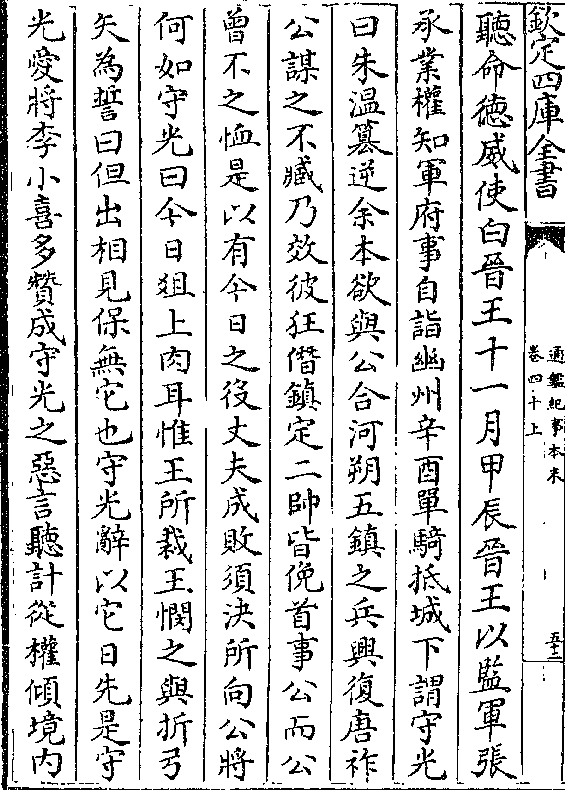 欽定四庫全書
通鑑紀事本末
卷四十上
五十二
聽命德威使白晉王十一月甲辰晉王以監軍張
承業權知軍府事自詣幽州辛酉單騎抵城下謂守光
曰朱温簒逆余本欲與公合河朔五鎮之兵興復唐祚
公謀之不臧乃效彼狂僭鎮定二帥皆俛首事公而公
曾不之恤是以有今日之役丈夫成敗須決所向公將
何如守光曰今日俎上肉耳惟王所裁王憫之與折弓
矢為誓曰但出相見保無它也守光辭以它日先是守
光愛將李小喜多贊成守光之惡言聽計從權傾境内